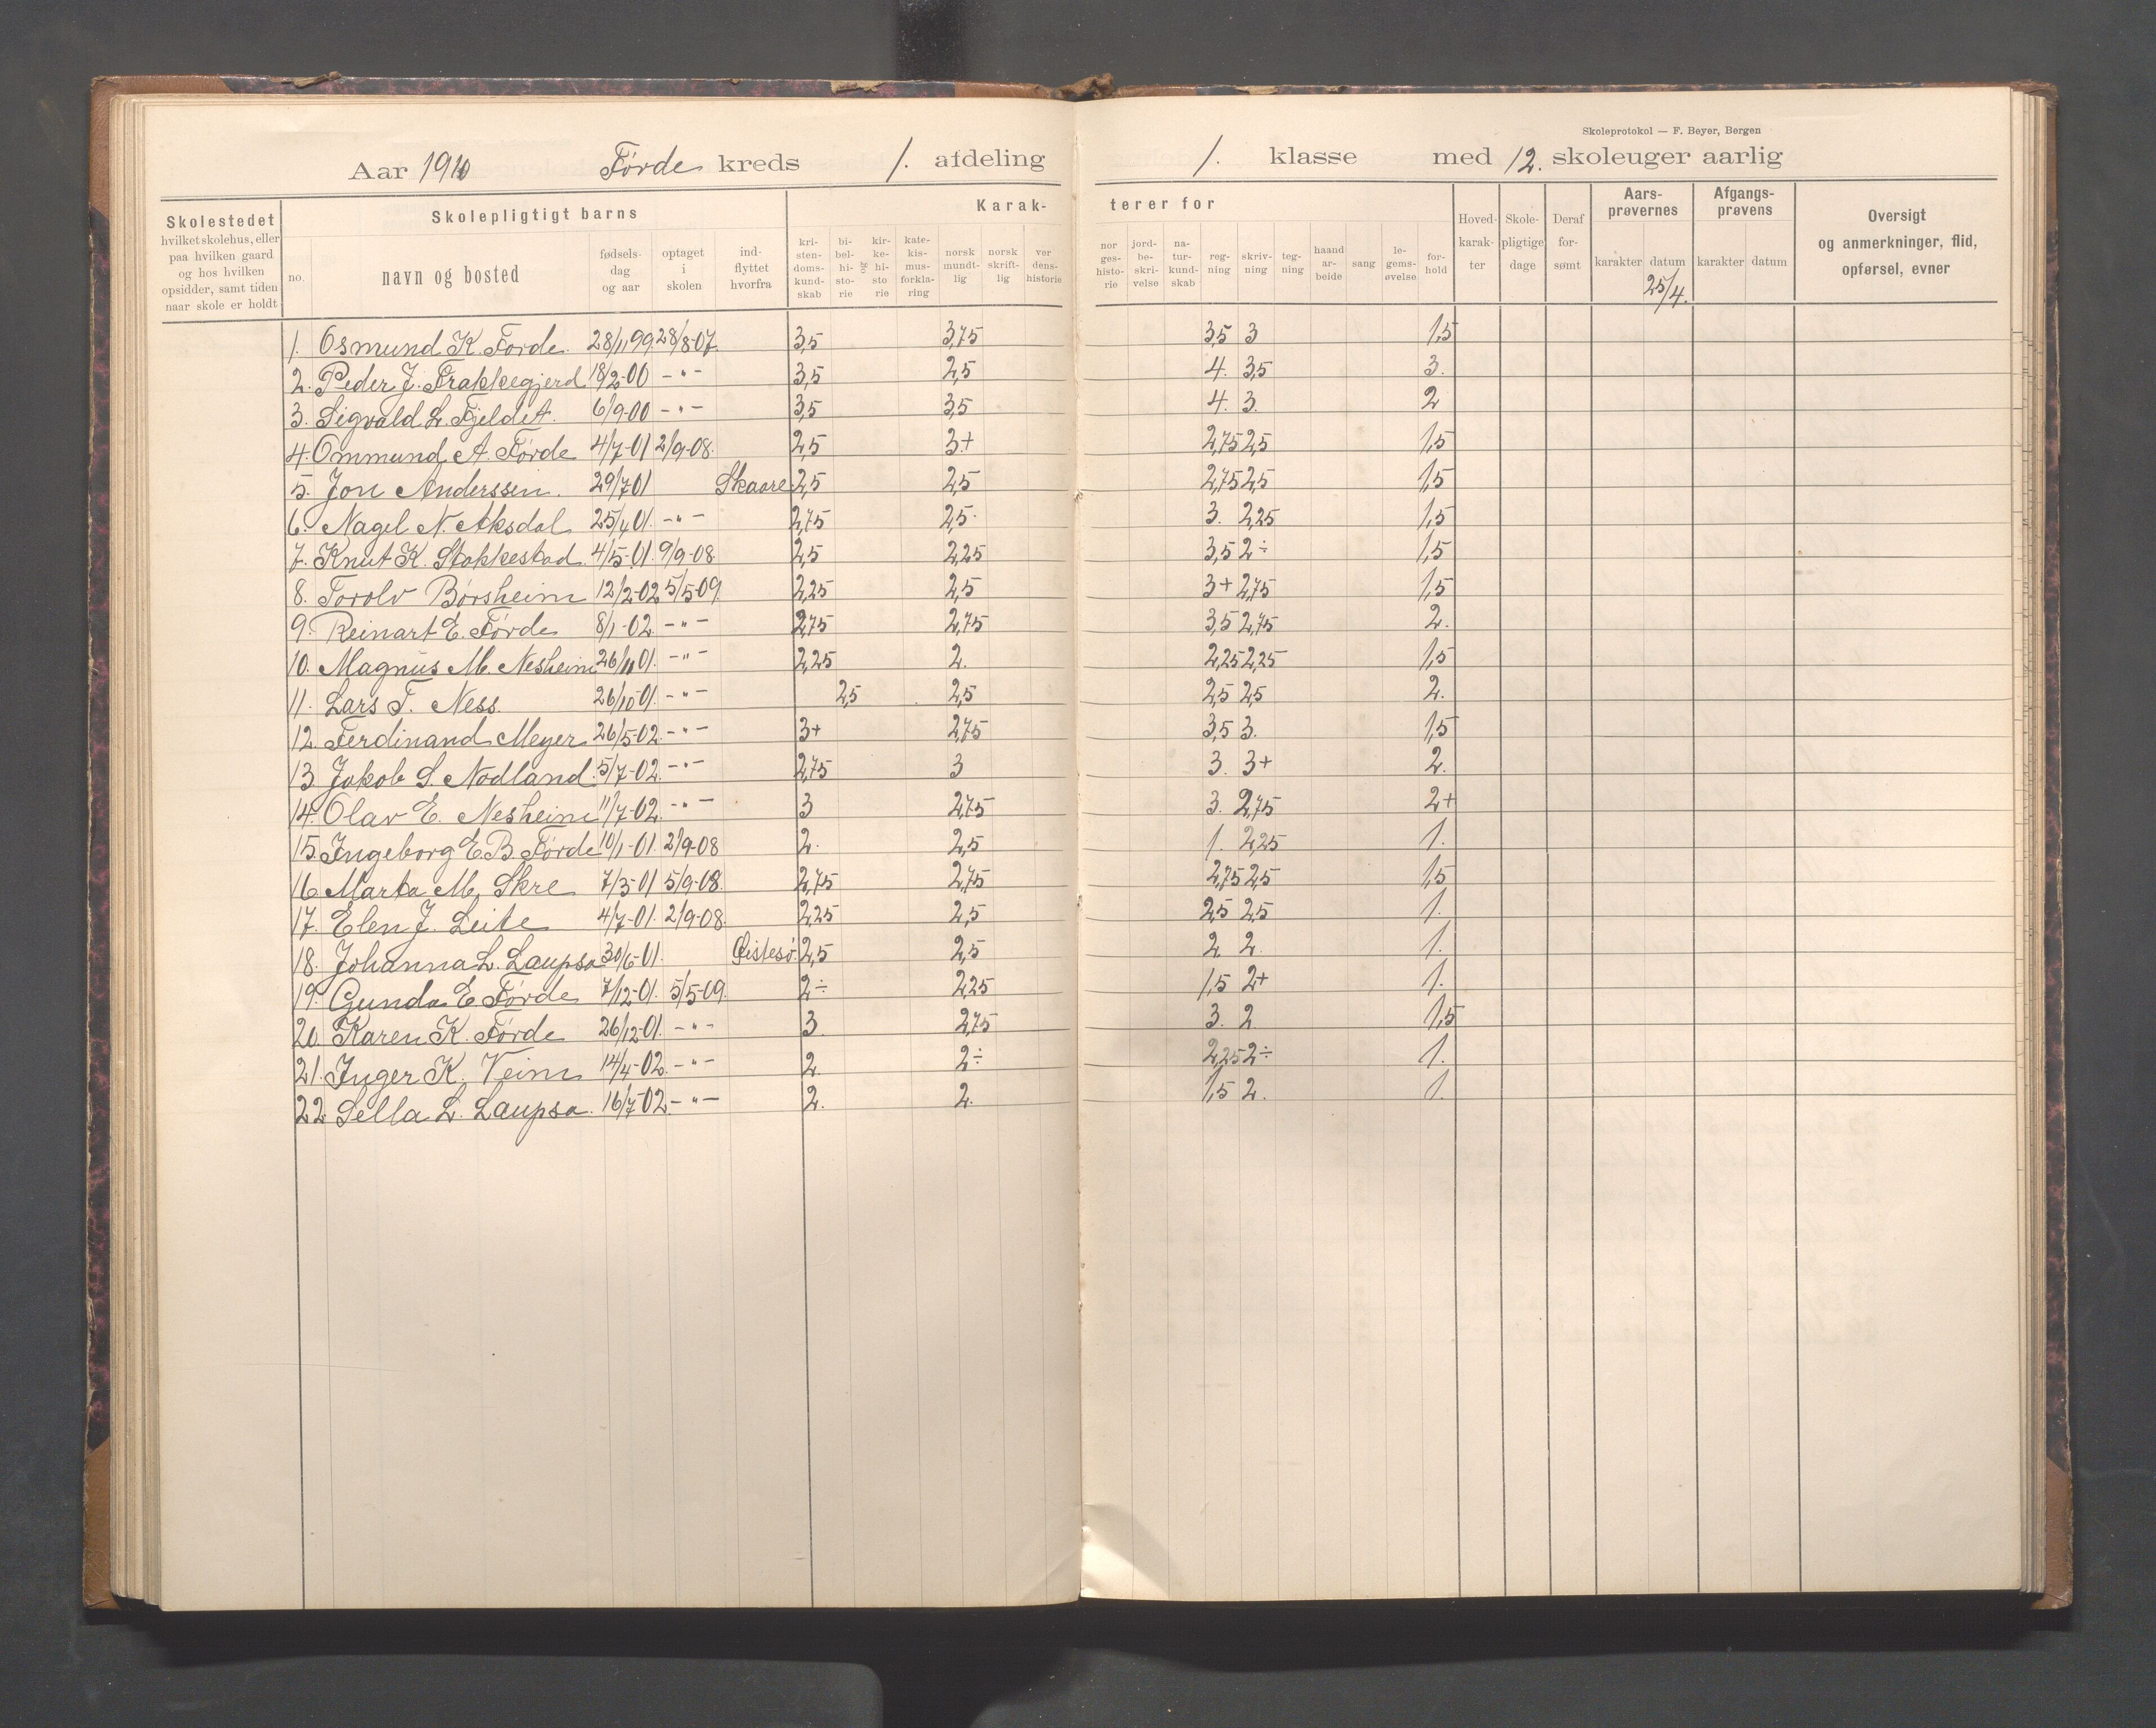 Skoleprotokol — F. Beyer, Bergen
Aar 1910 Førde kreds 1. afdeling 1. klasse med 12. skoleuger aarlig
Skolestedet hvilket skolehus, eller paa hvilken gaard og hos hvilken opsidder, samt tiden naar skole er holdt
Skolepligtigt barns
no. navn og bosted fødsels-dag og aar optaget i skolen ind-flyttet hvorfra
Karak-terer for
kri-sten-doms-kund-skab bi-bel-hi-sto-rie og kir-ke-hi-sto rie kate-kis-mus-forkla-ring norsk mundt-lig norsk skrift-lig ver dens-historie
nor ges-histo-rie jord-be-skri-velse na-tur-kund-skab reg-ning skriv-ning teg-ning haand ar-beide sang le-gems-øvelse for-hold
Hoved-karak-ter Skole-pligtige dage Deraf for-sømt
Aars-prøvernes karakter datum 25/4.
Afgangs-prøvens karakter datum
Oversigt og anmerkninger, flid, opførsel, evner
1. Osmund K. Førde. 28/11 99. 28/8-07. 3,5 3,75 3,5 3 1,5
2. Peder J. Frakkegjerd 18/2-00 -"- 3,5 2,5 4. 3,5 3.
3. Sigvald L. Fjeldet. 6/9-00 -"- 3,5 3,5 4. 3. 2
4. Ommund A. Førde 4/7-01 2/9-08. 2,5 3+ 2,75 2,5 1,5
5. Jon Anderssen. 29/7 01 Skaare 2,5 2,5 2,75 2,5 1,5
6. Nagel N. Aksdal 25/4 01. -"- 2,75 2,5 3. 2,25 1,5
7. Knut K. Stakkestad 4/5-01. 9/9-08 2,5 2,25 3,5 2÷ 1,5
8. Torolv Børsheim 12/2-02 5/5-09. 2,25 2,5 3+ 2,75 1,5
9. Reinart E. Førde 8/1-02. -"- 2,75 2,75 3,5 2,75 2.
10. Magnus M. Nesheim 26/11 01. -"- 2,25 2. 2,25 2,25 1,5
11. Lars T. Ness. 26/10 01. -"- 2,5 2,5 2,5 2,5 2.
12. Ferdinand Meyer 26/5-02. -"- 3+ 2,75 3,5 3. 1,5
13. Jakob S. Nodland. 5/7-02. -"- 2,75 3 3. 3+ 2.
14. Olav E. Nesheim 11/7-02. -"- 3 2,75 3. 2,75 2+
15. Ingeborg E.B. Førde 10/1-01. 2/9-08 2. 2,5 1. 2,25 1.
16 Marta M. Skre 7/3-01 5/9-08. 2,75 2,75 2,75 2,5 1,5
17. Elen J. Leite 4/7-01. 2/9-08. 2,25 2,5 2,5 2,5 1.
18. Johanna L. Laupsa 30/6-01. Øistesø. 2,5 2,5 2. 2. 1.
19. Gunda E Førde 7/12-01. 5/5-09. 2÷ 2,25 1,5 2+ 1.
20. Karen K. Førde 26/12-01. -"- 3. 2,75 3. 2 1,5
21. Inger K. Veim 14/4-02. -"- 2. 2÷ 2,25 2÷ 1.
22. Sella L. Laupsa. 16/7-02 -"- 2. 2. 1,5 2. 1.